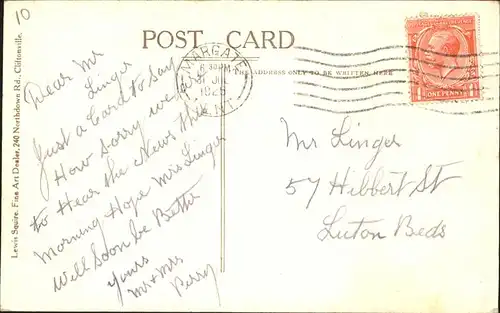 10
POST CARD
MARGATE
KENT
THE ADDRESS ONLY TO BE WRITTEN HERE
ONE PENNY
Lewis Squire, Fine Art Dealer, 240 Northdown Rd., Cliftonville.
Dear Mr
Linger
Just a Card to Say
How Sorry we are
to Hear the News this
Morning Hope Mrs Linger
Will Soon be Better
yours
Mr + Mrs
Perry
Mr Linger
57 Hibbert St
Luton Beds